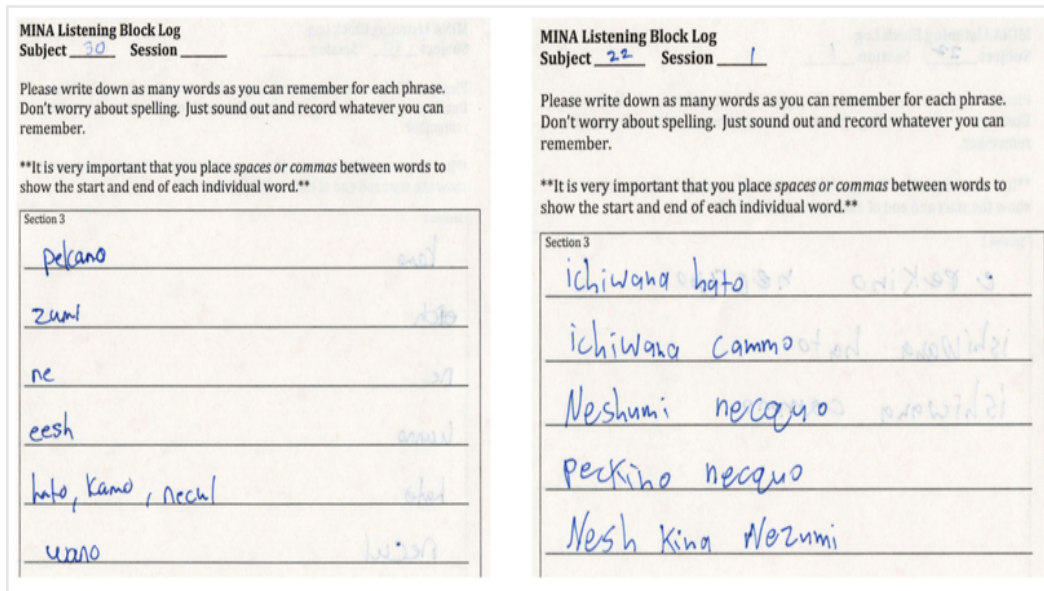 MINA Listening Block Log
Subject 30 Session
Please write down as many words as you can remember for each phrase.
Don't worry about spelling. Just sound out and record whatever you can
remember.
**It is very important that you place spaces or commas between words to
show the start and end of each individual word.**
Section 3
pekano
zumi
ne
eesh
hato, kamo, necul
wano
MINA Listening Block Log
Subject 22 Session 1
Please write down as many words as you can remember for each phrase.
Don't worry about spelling. Just sound out and record whatever you can
remember.
**It is very important that you place spaces or commas between words to
show the start and end of each individual word.**
Section 3
ichiwana hato
ichiwana cammo
Neshumi necquo
peckino necquo
Nesh kina Nezumi